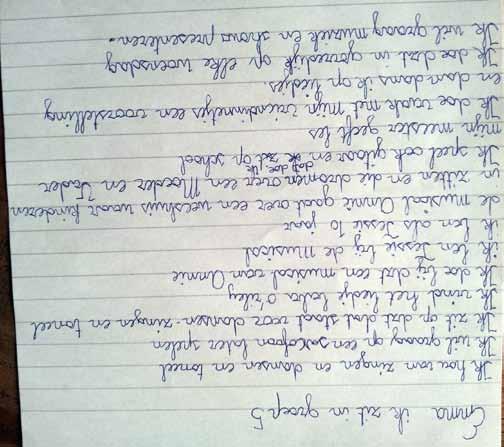 Emma ik zit in groep 5
Ik hou van zingen en dansen en toneel
Ik wil graag op een saxofoon later spelen
Ik zit op dat stast voor dansen-zingen en toneel
Ik vind het liedje baba O'riley
Ik doe bij dat een musical van Annie
ik ben Jessie bij de musical
ik ben als Jessie 10 jaar
de musical Annie gaat over een weeshuis waar kinderen
in zitten en die dromen over een Moeder en Vader
Ik speel ook gitaar en dat doe ik op school
mijn meester geeft les
Ik doe vaak met mijn vriendinnetjes een voorstelling
en dan dans ik op liedjes
Ik doe dat in op elke woensdag
Ik wil graag muziek en shows presenteren.